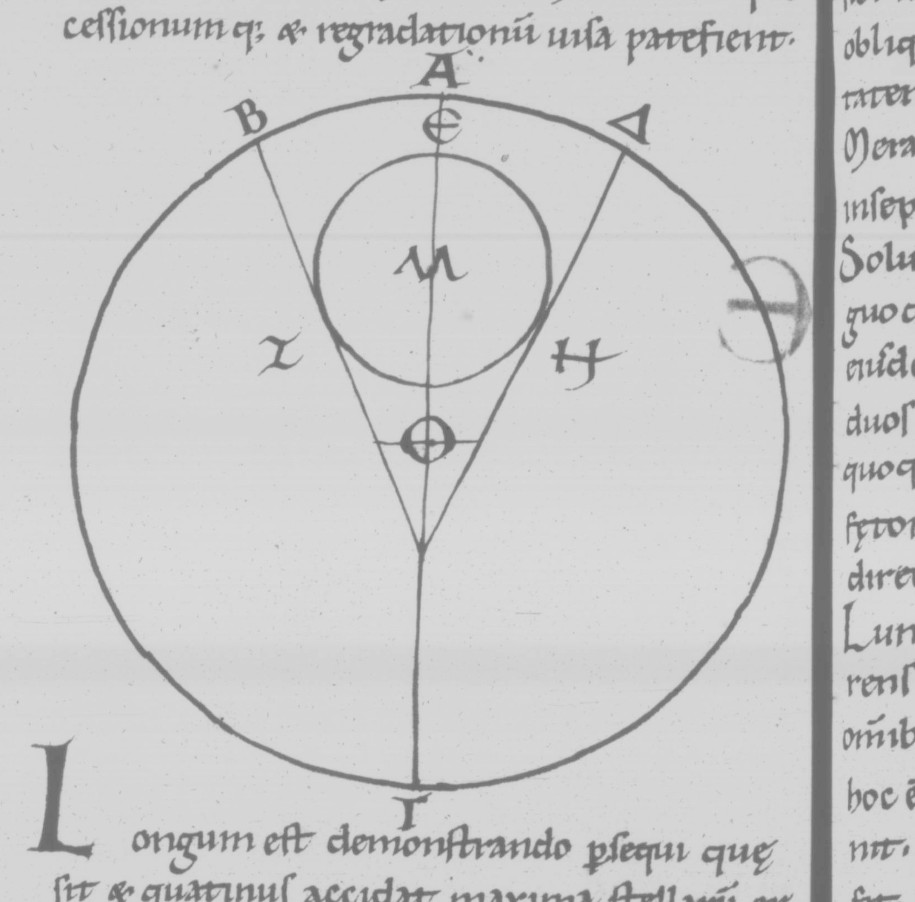 cessionum q; & regradationū uisa patefient.
A
B
Є
Δ
M
Z
H
Θ
Γ
Longum est demonstrando psequi quę
sit & quatinus accidat maxima stellarū
obliq
tater
Mera
insep
Solu
guo c
eiusde
duos
quoq
fęto
direc
Lun
rens
om̄ib
hoc ē
nit.